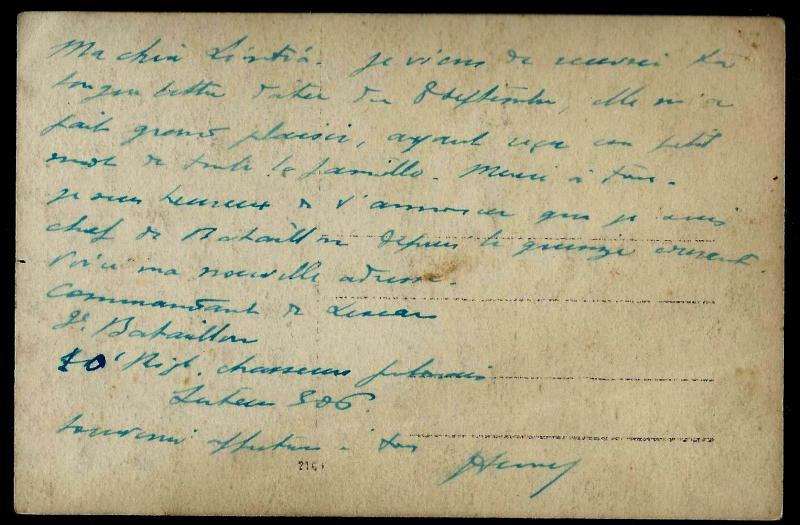 Ma chère je viens de recevoir ta
longue lettre datée du 8 septembre, elle m'a
fait grand plaisir, ayant reçu un petit
mot de toute la famille. Merci à tous.
je suis heureux de t'annoncer que je suis
chef de Bataillon depuis le quinze courant.
Voici ma nouvelle adresse.
Commandant de
2e Bataillon
10e Régt. chasseurs polonais
Secteur 306.
souvenir affectueux à tous
Henry